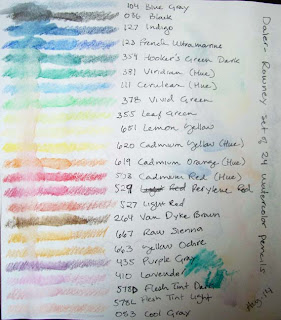 104 Blue Gray
036 Black
127 Indigo
123 French Ultramarine
359 Hooker's Green Dark
381 Viridian (Hue)
111 Cerulean (Hue)
378 Vivid Green
355 Leaf Green
651 Lemon Yellow
620 Cadmium Yellow (Hue)
619 Cadmium Orange (Hue)
503 Cadmium Red (Hue)
529 Light Red Perylene Red
527 Light Red
264 Van Dyke Brown
667 Raw Sienna
663 Yellow Ochre
435 Purple Gray
410 Lavender
578D Flesh Tint Dark
578L Flesh Tint Light
053 Cool Gray
Daler-Rowney set of 24 Watercolor Pencils